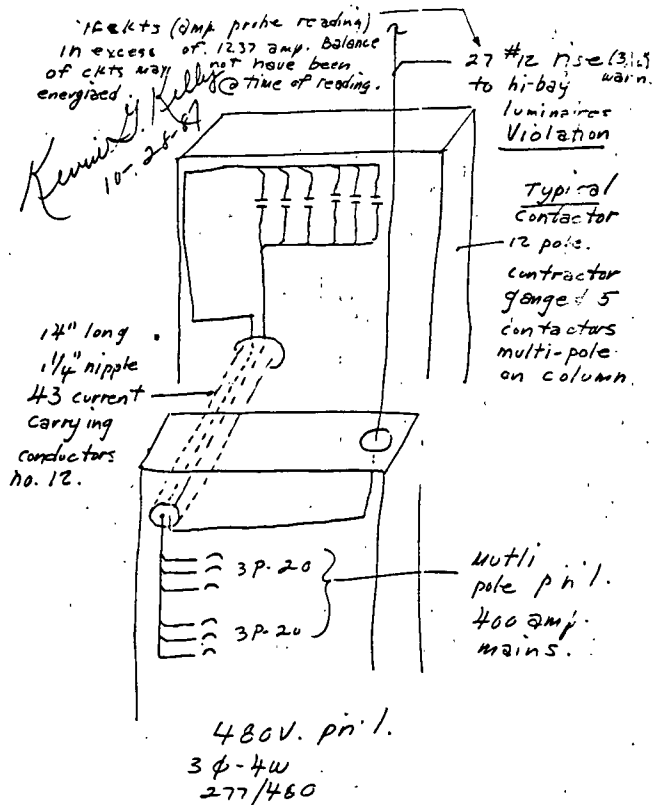 ckts (amp probe reading)
in excess of 1237 amp. Balance
of ckts may not have been
energized @ time of reading.
10-28-87
27 #12 rise
to hi-bay warn.
luminaires
Violation
Typical
contactor
12 pole.
contractor
ganged 5
contactors
multi-pole
on column.
14" long
1 1/4" nipple
43 current
carrying
conductors
no. 12.
3P-20
3P-20
Mutli
pole pnl.
400 amp.
mains.
480V. pnl.
3ϕ-4W
277/480